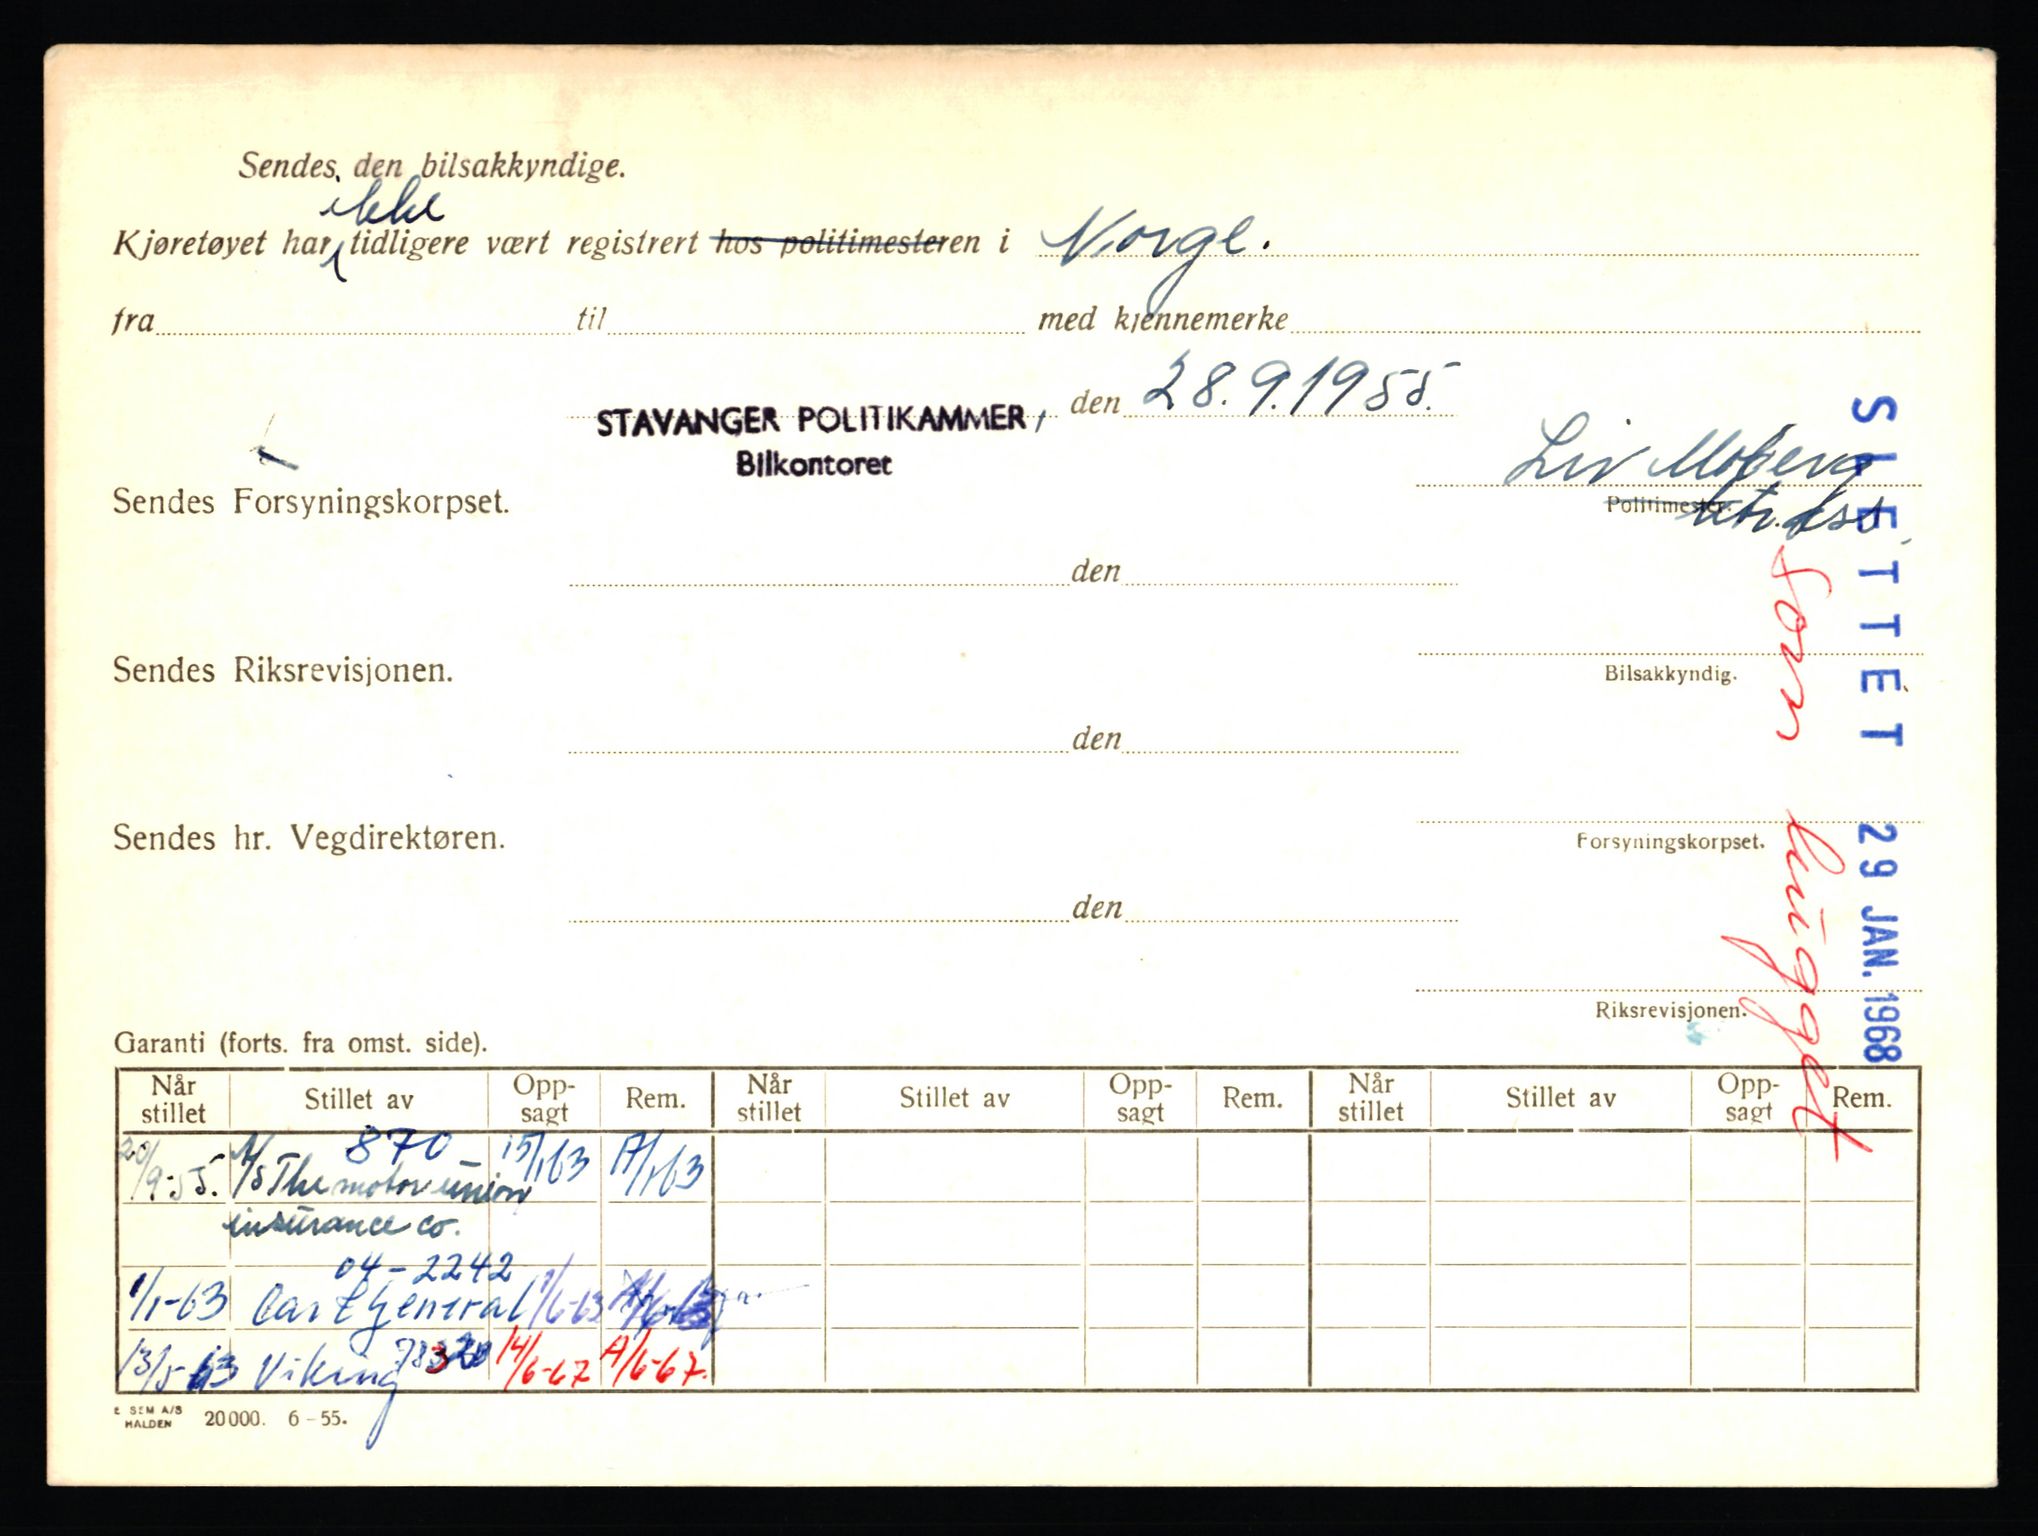 Sendes den bilsakkyndige.
ikke
Kjøretøyet har tidligere vært registrert hos politimesteren i Norge.
fra til med kjennemerke
STAVANGER POLITIKAMMER, den 28.9.1955.
Bilkontoret
Liv Moberg
Politimester.
ktr. ass.
Sendes Forsyningskorpset.
den
Bilsakkyndig.
Sendes Riksrevisjonen.
den
Forsyningskorpset.
Sendes hr. Vegdirektøren.
den
Riksrevisjonen.
SLETTET 29 JAN. 1968
Som hugget
Garanti (forts. fra omst. side).
Når stillet Stillet av Opp-sagt Rem. Når stillet Stillet av Opp-sagt Rem. Når stillet Stillet av Opp-sagt Rem.
870
20/9-55. A/S The motor union 15/1 63 A/1 63
insurance co.
04-2242
1/1-63 Car & General 1/6-63
13/5-63 Viking 14/6-67 A/6-67.
E SEM A/S
HALDEN 20000. 6-55.